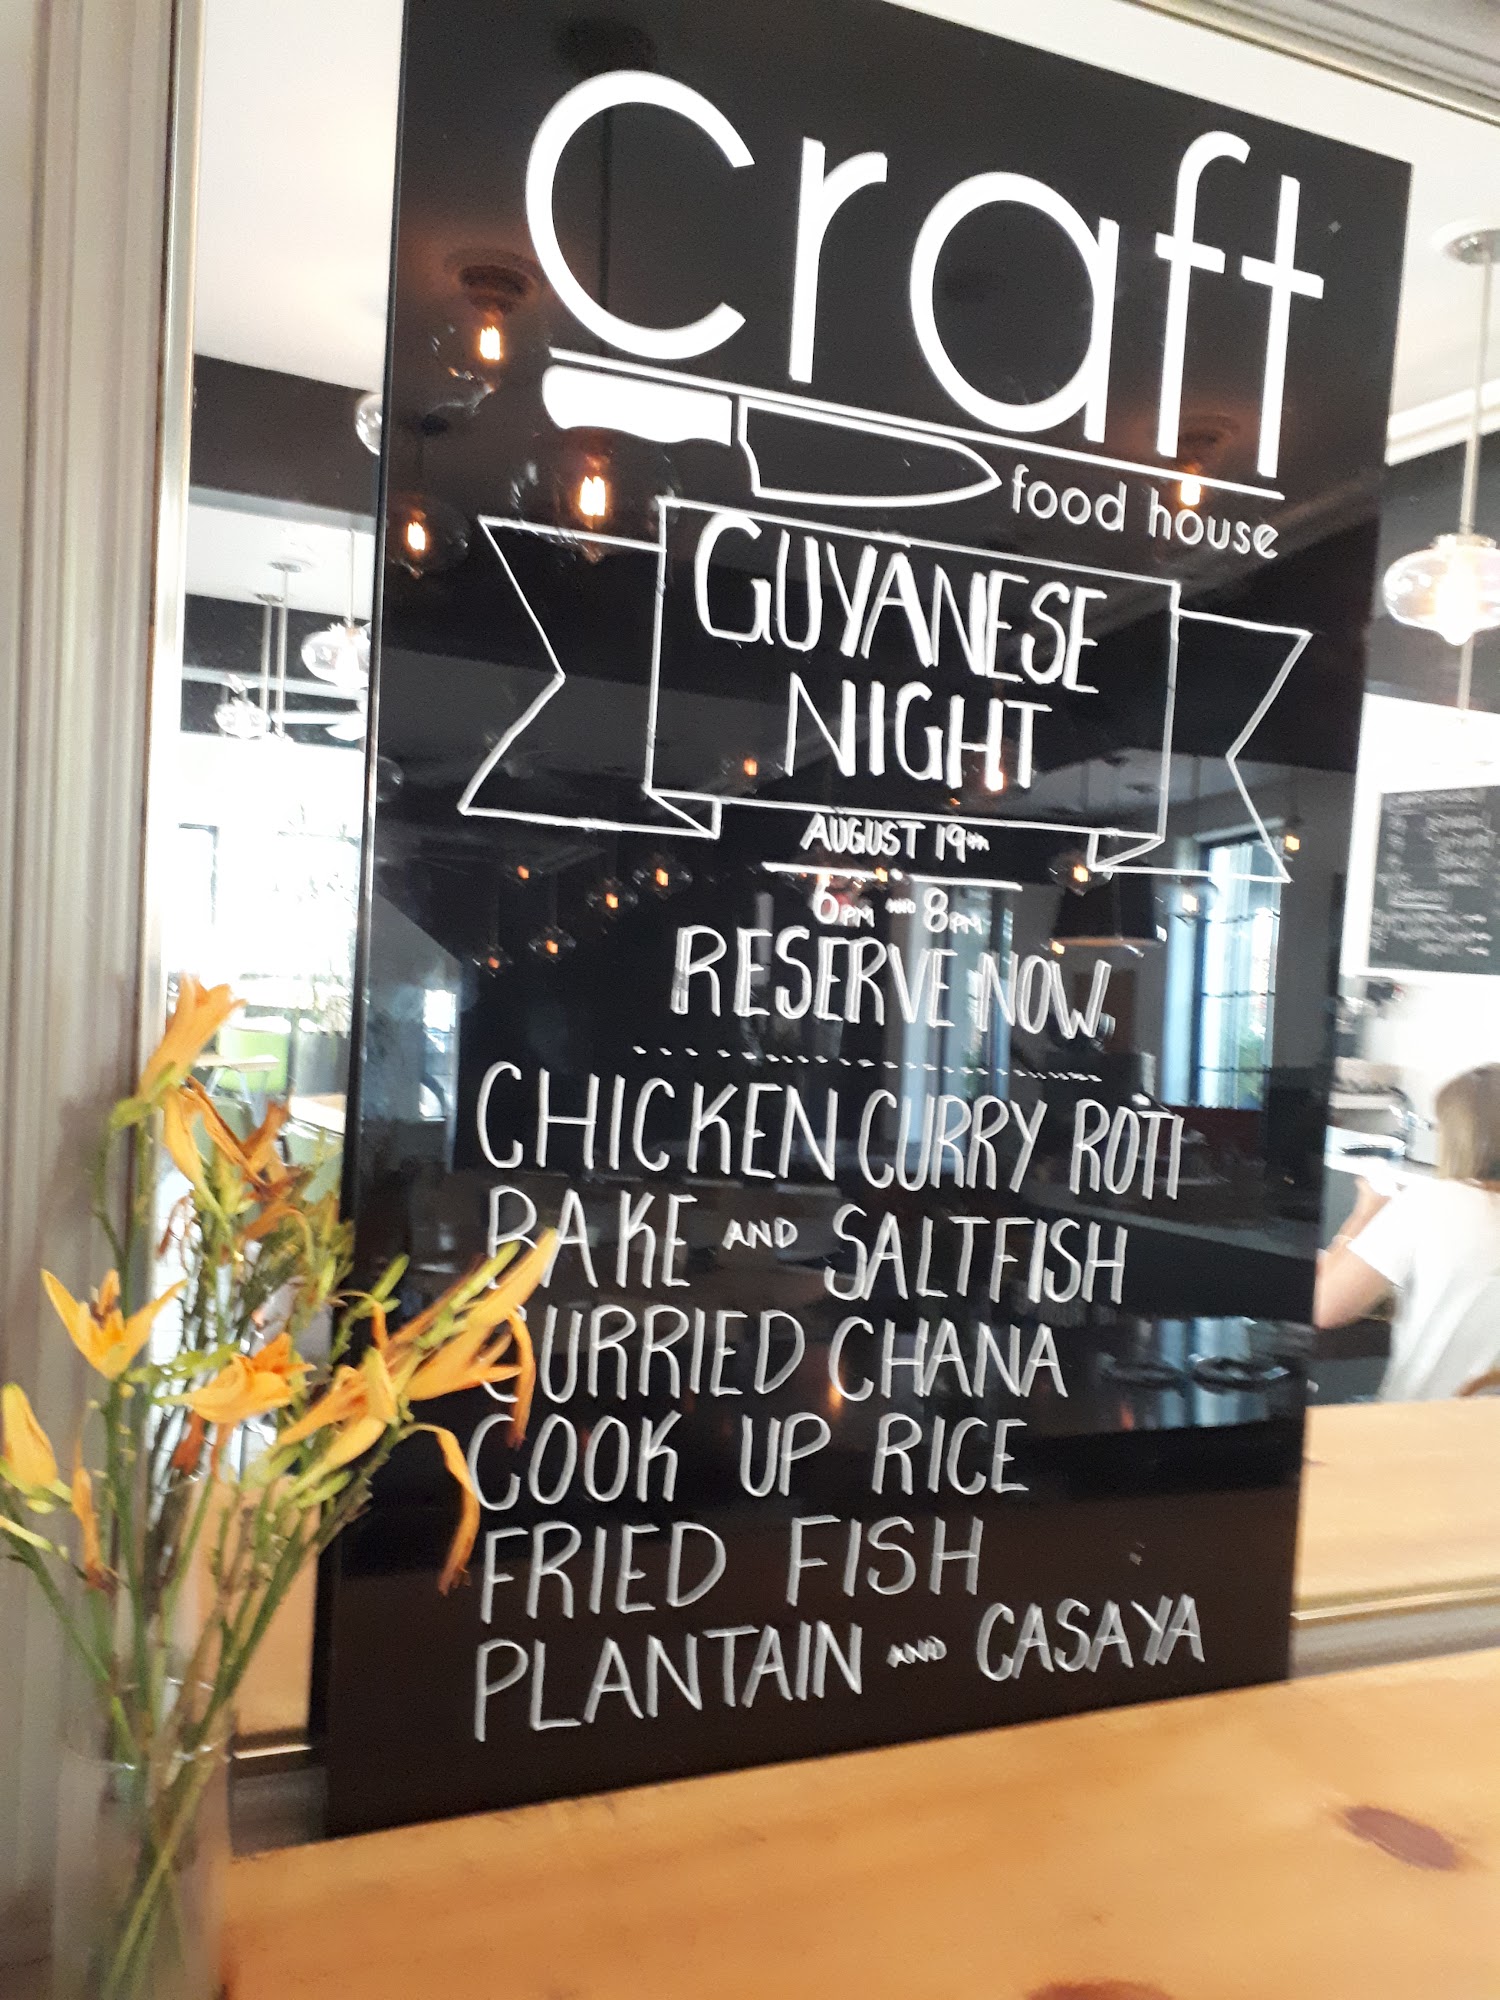 craft
food house
GUYANESE
NIGHT
AUGUST 19th
6PM AND 8PM
RESERVE NOW
CHICKEN CURRY ROTI
BAKE AND SALTFISH
CURRIED CHANA
COOK UP RICE
FRIED FISH
PLANTAIN AND CASAYA